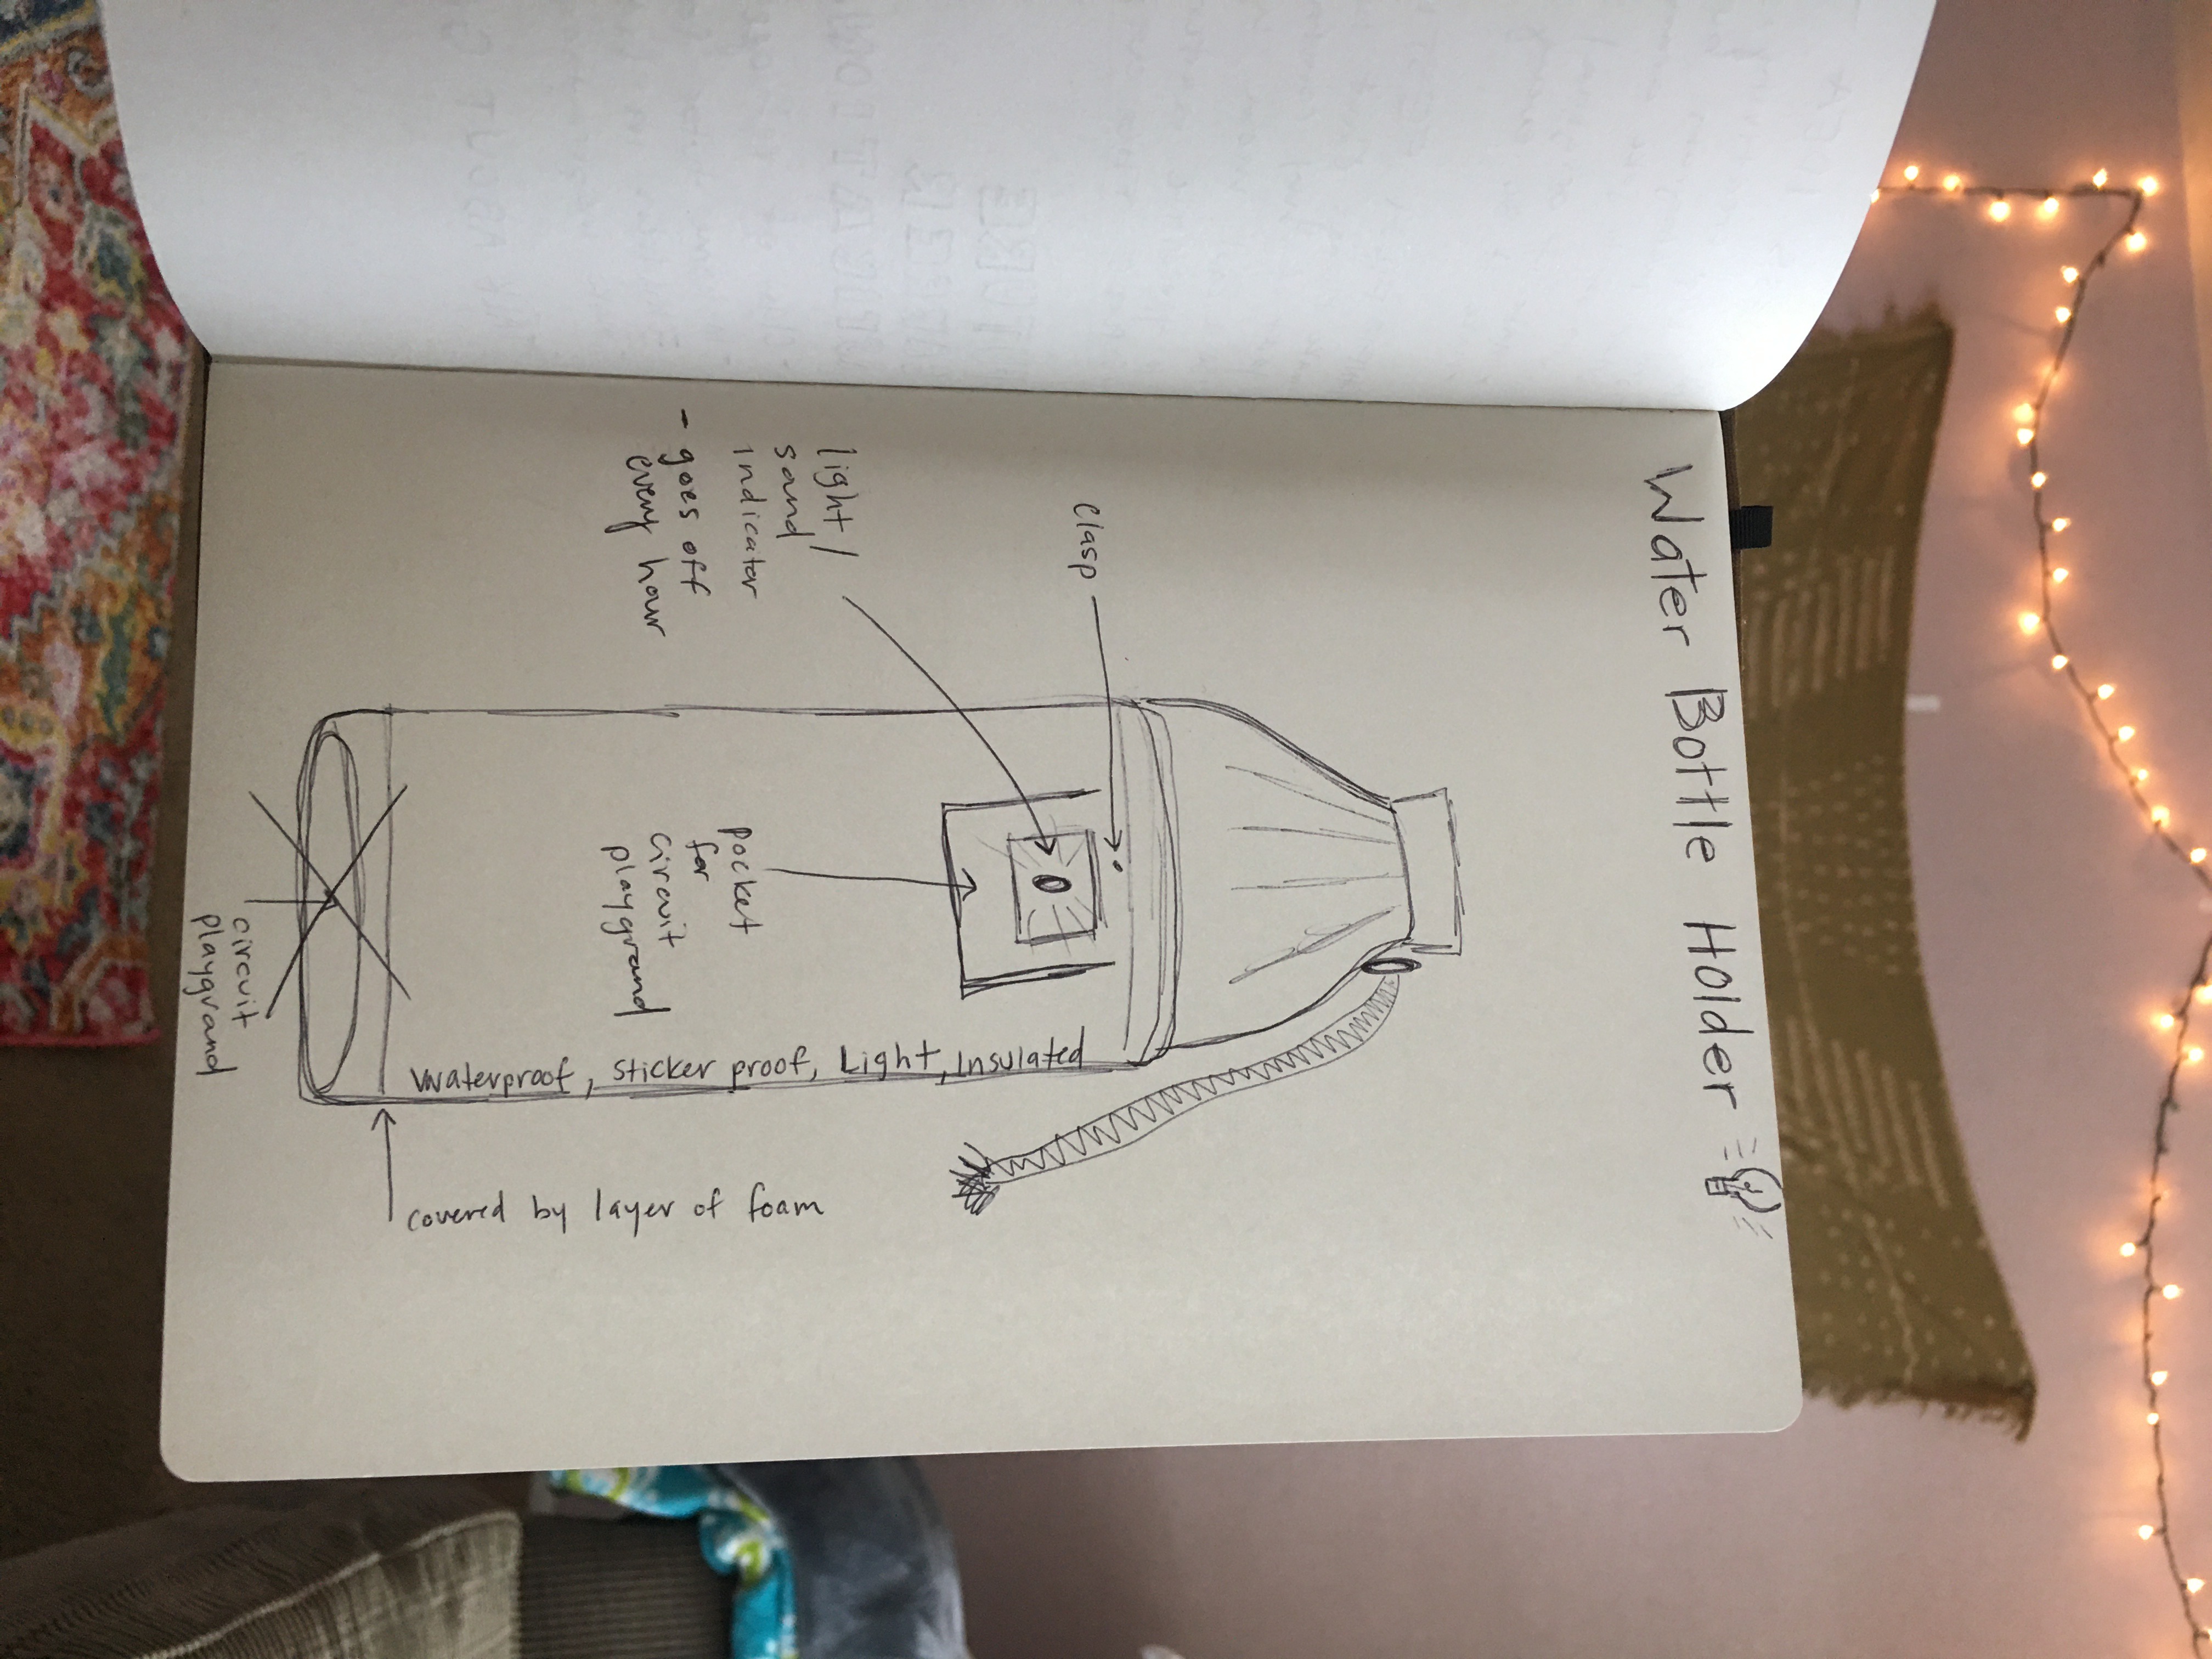 Water Bottle Holder
clasp
light/
sound
indicator
- goes off
every hour
pocket
for
circuit
playground
Waterproof, Sticker proof, Light, Insulated
covered by layer of foam
circuit
playground